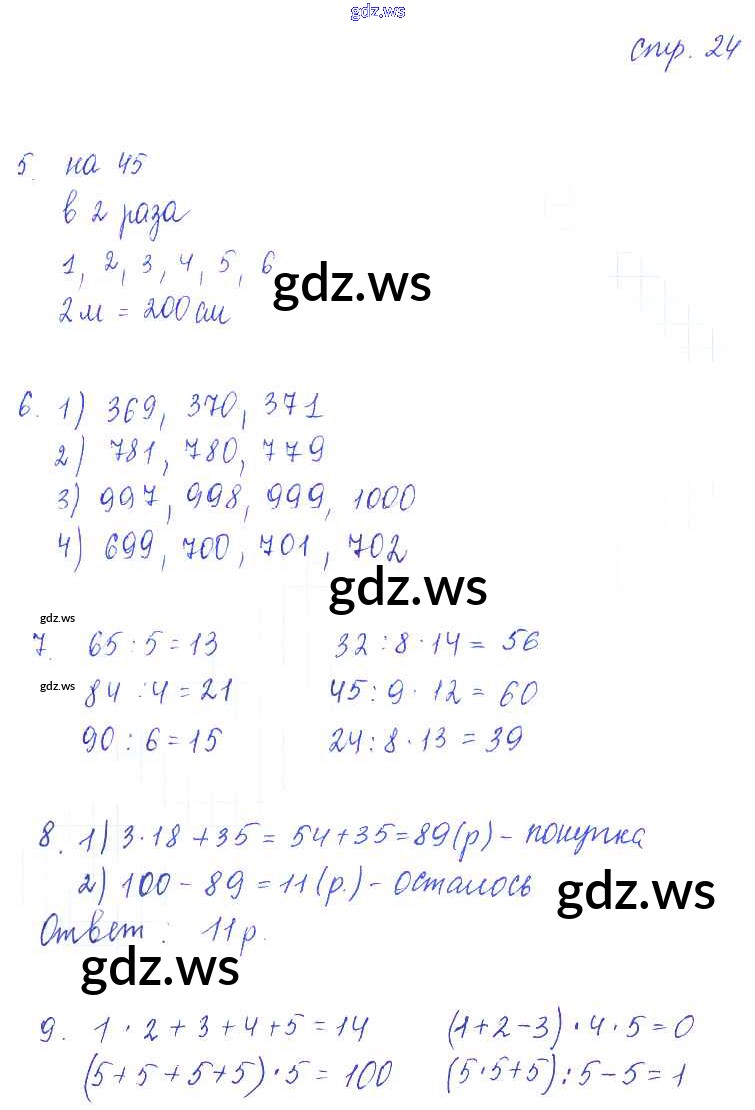 gdz.ws
стр. 24
5. на 45
в 2 раза
1, 2, 3, 4, 5, 6
gdz.ws
2м = 200см
6. 1) 369, 370, 371
2) 781, 780, 779
3) 997, 998, 999, 1000
4) 699, 700, 701, 702
gdz.ws
gdz.ws
7. 65 : 5 = 13 32 : 8 · 14 = 56
gdz.ws
84 : 4 = 21 45 : 9 · 12 = 60
90 : 6 = 15 24 : 8 · 13 = 39
8. 1) 3·18 + 35 = 54 + 35 = 89 (р) - покупка
2) 100 - 89 = 11 (р.) - осталось
gdz.ws
Ответ: 11р.
gdz.ws
9. 1 · 2 + 3 + 4 + 5 = 14 (1 + 2 - 3) · 4 · 5 = 0
(5 + 5 + 5 + 5) · 5 = 100 (5 · 5 + 5) : 5 - 5 = 1